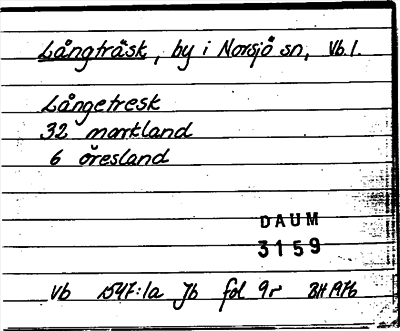 Långträsk, by i Norsjö sn, Vb.l.
Långetresk
32 markland
6 öresland
DAUM
3159
Vb 1547:1a Jb fol 9r BH 1976